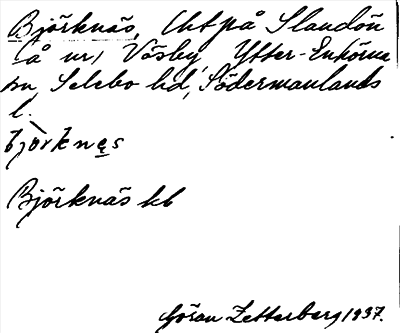 Björknäs, lht på Slandön
å nr 1 Väsby, Ytter-Enhörna
sn, Selebo hd, Södermanlands
l.
bjòrknęs
Björknäs kb
Göran Zetterberg 1937.